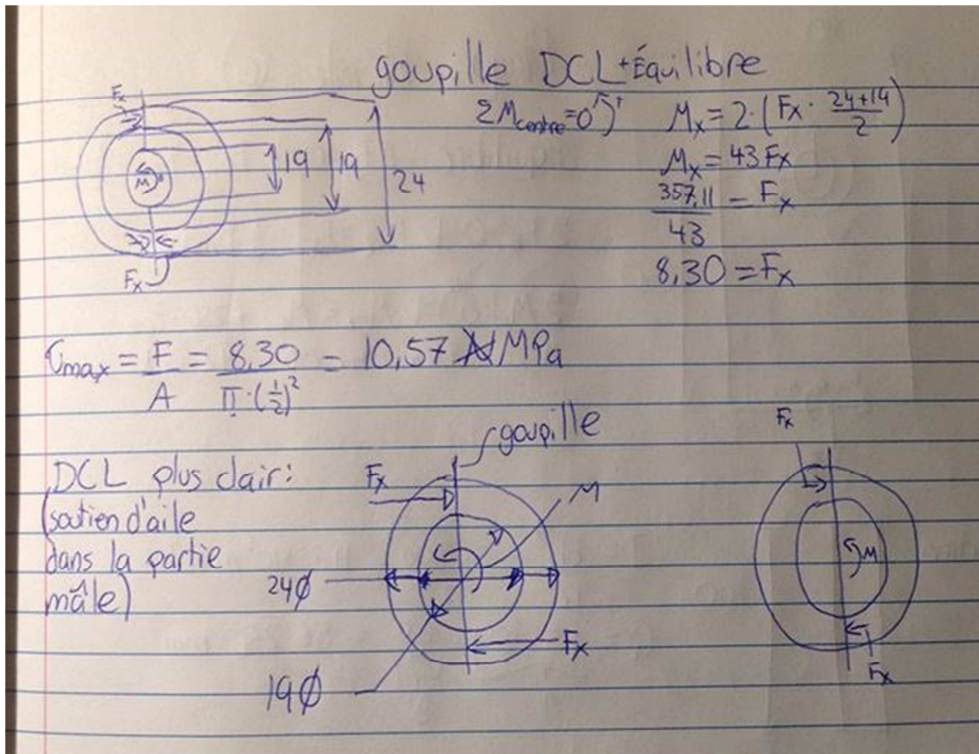 goupille DCL + Équilibre
Fx
ΣMcentre=0 ↶+
Mx = 2·(Fx · (24+19)/2)
Mx = 43 Fx
357,11/43 = Fx
8,30 = Fx
M
19
19
24
Fx
τmax = F/A = 8,30/(π·(1/2)²) = 10,57 MPa
DCL plus clair:
(soutien d'aile
dans la partie
mâle)
goupille
Fx
M
24ϕ
Fx
19ϕ
Fx
M
Fx